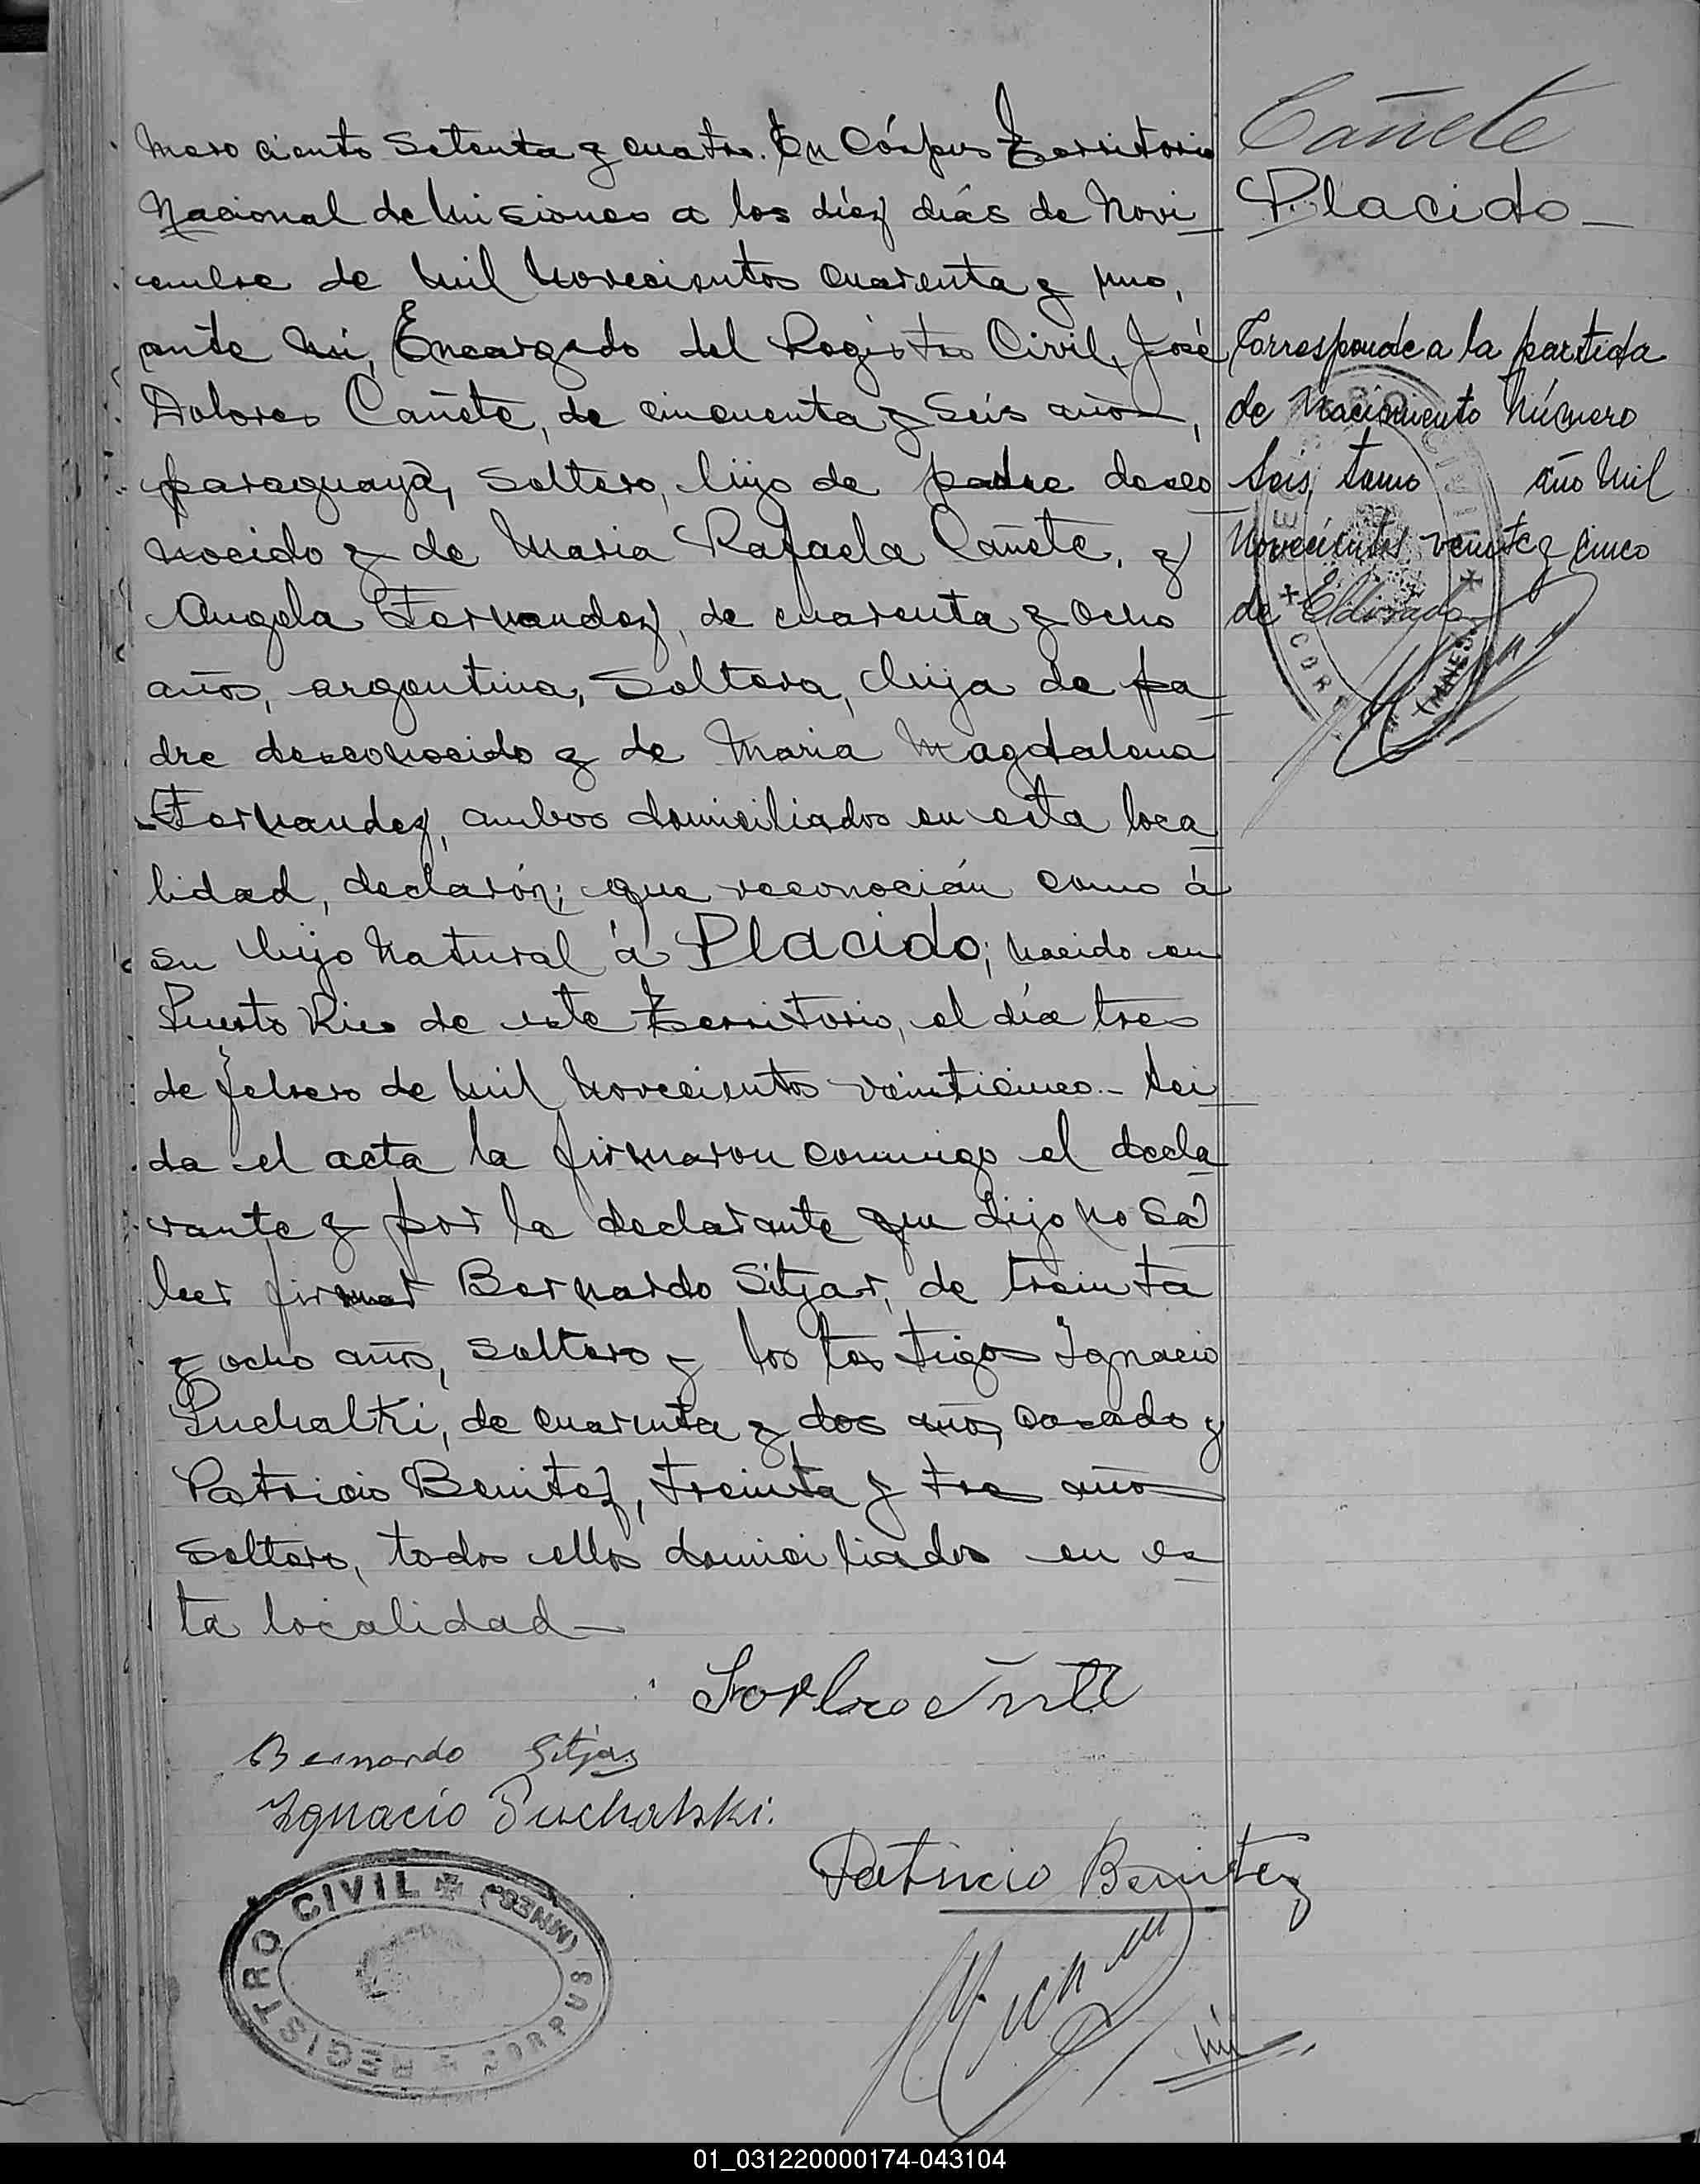 mero ciento setenta y cuatro. En Córpus Territorio
Nacional de Misiones a los diéz diás de Novi
embre de mil novecientos cuarenta y uno,
ante mi, Encargado del Registro Civil, José
Dolores Cañete, de cincuenta y seis años,
paraguayo, soltero, hijo de padre desco
nocido y de Maria Rafaela Cañete, y
Angela Fernandez, de cuarenta y ocho
años, argentina, soltera, hija de pa
dre desconocido y de Maria Magdalena
Fernandez, ambos domiciliados en esta loca
lidad, declarón; que reconocián como á
su hijo natural á Placido; nacido en
Puerto Rico de este Territorio, el día tres
de febrero de mil novecientos veinticinco.- Lei
da el acta la firmaron conmigo el decla
rante y por la declarante que dijo no sa
ber firmar Bernardo Sitjar, de treinta
y ocho años, soltero y los testigos Ignacio
Puchalki, de cuarenta y dos años, casado y
Patricio Benitez, treinta y tres años
soltero, todos ellos domiciliados en es
ta localidad
Bernardo Sitjar
Ignacio Puchalski.
Patricio Benitez
REGISTRO CIVIL
CORPUS (MNES.)
Cañete
Placido
Corresponde a la partida
de Nacimiento Número
Seis, tomo año mil
Novecientos veinte y cinco
de Eldorado
01_031220000174-043104